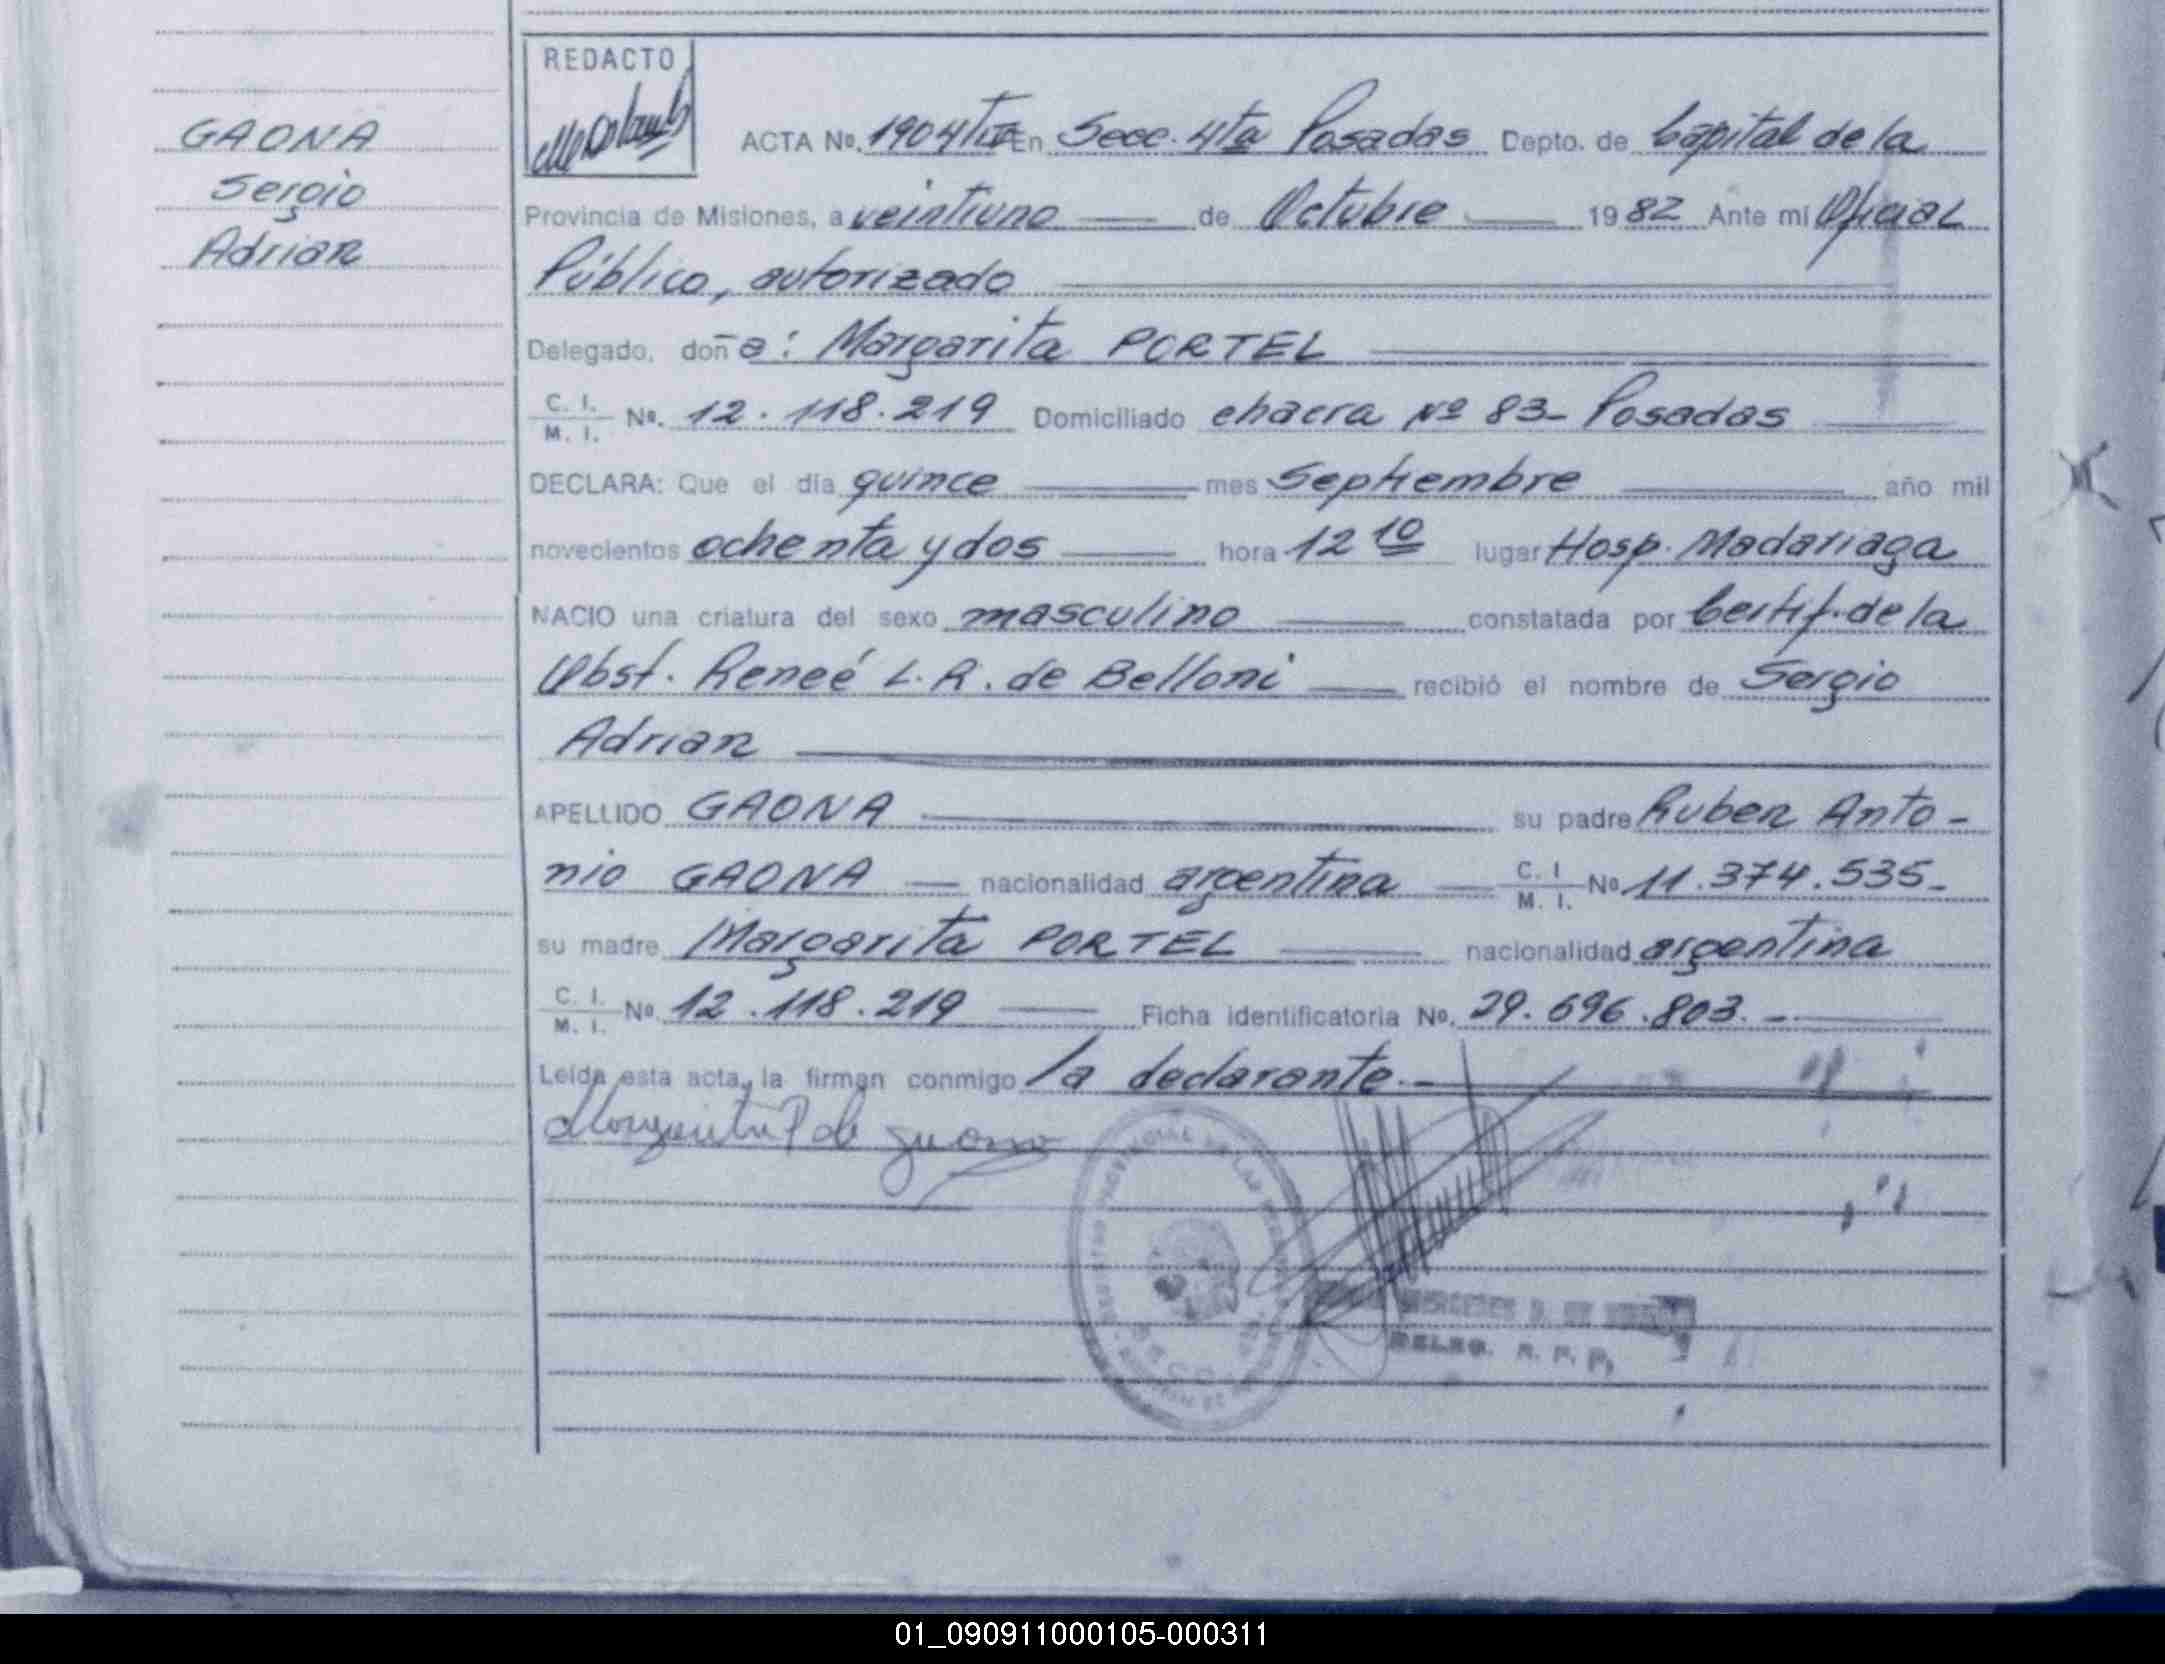 REDACTO
GAONA
Sergio
Adrian
ACTA No. 1904 En Secc. 4ta Posadas Depto. de Capital de la
Provincia de Misiones, a veintiuno de Octubre 1982 Ante mi Oficial
Público, autorizado
Delegado, doña: Margarita PORTEL
C. I. / M. I. No. 12.118.219 Domiciliado chacra Nº 83- Posadas
DECLARA: Que el día quince mes Septiembre año mil
novecientos ochenta y dos hora 12 10 lugar Hosp. Madariaga
NACIO una criatura del sexo masculino constatada por Certif. de la
Obst. Reneé L. R. de Belloni recibió el nombre de Sergio
Adrian
APELLIDO GAONA su padre Ruben Anto-
nio GAONA nacionalidad argentina C. I. / M. I. No. 11.374.535-
su madre Margarita PORTEL nacionalidad argentina
C. I. / M. I. No. 12.118.219 Ficha identificatoria No. 29.696.803.-
Leída esta acta, la firman conmigo la declarante.-
Margarita P de Gaona
DELEG. R. P. P.
01_090911000105-000311